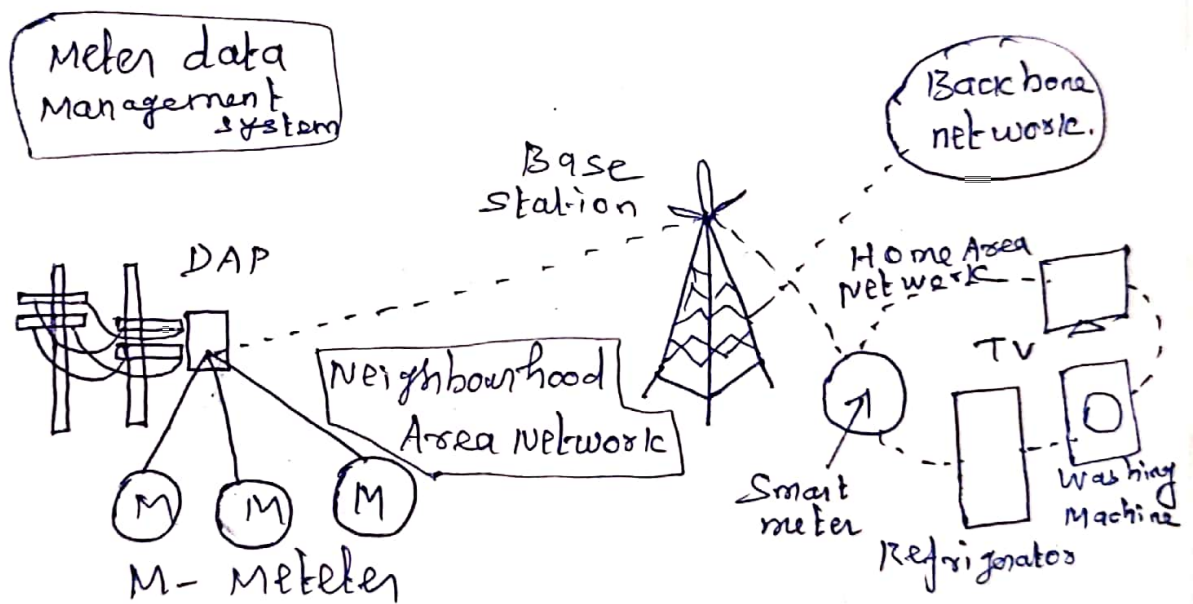 Meter data
Management
system
Backbone
network.
Base
Station
DAP
Home Area
Network
TV
Neighbourhood
Area Network
M
M
M
M - Meteter
Smart
meter
Washing
Machine
Refrigerator